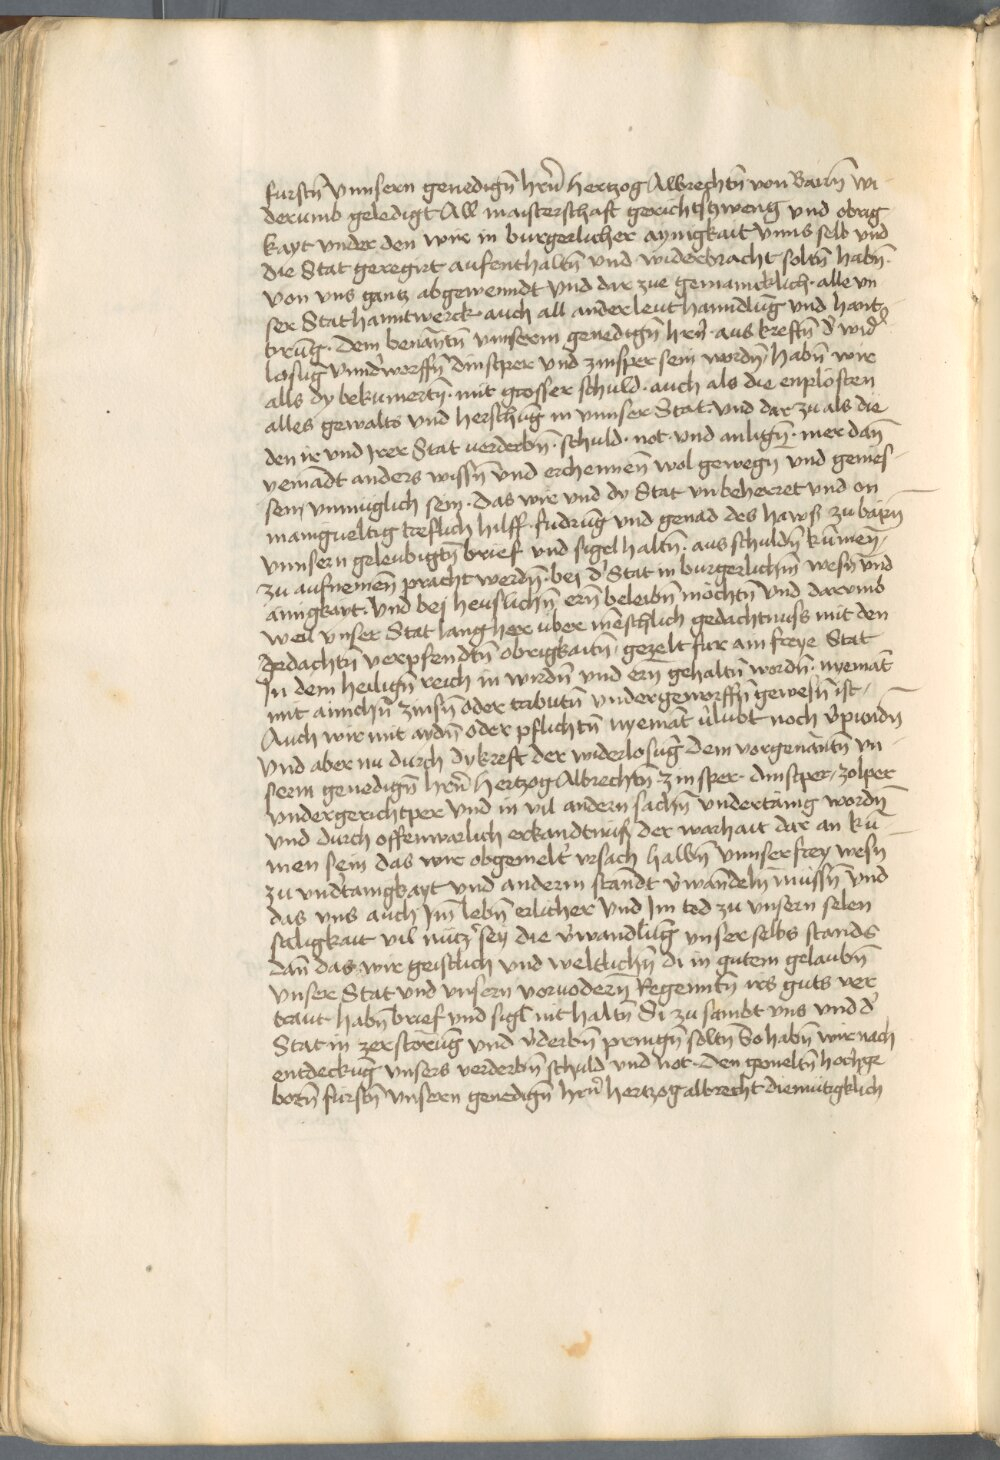 furstn̄ Vnnsern genedign̄ hrn̄ hertzog Albrechtn̄ von Bairn̄ wi-
derumb geledigt All maisterschaft gerichtzweng vnd obrig
kayt vnder den wir in burgerlicher aynigkait vnns selb vnd
die Stat geregirt aufenthaltn̄ vnd widerbracht soltn̄ habn̄·
von vns gantz abgewenndt Vnd dar zue gemaincklich· alle vn
ser Stat hanntwerck· auch all ander leut hanndlūg vnd hant
tirūg· dem benantn̄ vnnserm genedign̄ hrn̄· aus kreftn̄ d' wid'
losūg vnnd'worffn̄ dinstper vnd zinsper sein wordn̄/ habn̄ wir
alls dy bekumertn̄· mit grosser schuld· auch als die enplösten
alles gewalts vnd herschūg in vnnser Stat· Vnd dar zu als die
den ir vnd Irer Stat verderbn̄· schuld· not· vnd anlign̄· mer dan̄
yemādt anders wissn̄ vnd erchennen wol gewegn vnd genies-
sem vnmüglich sein· Das wir vnd dy Stat vnbeherret vnd on
manigueltig treflich hilff· fudrūg vnd genad des hawss zu bairn̄
vnnsern geleubigtn̄ brief vnd sigel haltn̄· aus schuldn̄ kūmen̄-
zu aufnemen̄ pracht werdn̄· bei d' Stat in burgerlichn̄ wesn̄ vnd
ainigkayt· Vnd bej heuslichn̄ ern̄ beleibn̄ möchtn̄ Vnd darvmb
weil vnser Stat lang her über mēschlich gedachtnuss mit den
gedachtn̄ verpfendtn̄ obrigkaitn̄· gezelt fur ain freye Stat
In dem heilign̄ reich in wirdn̄ vnd ern̄ gehaltn̄ wordn̄· nyemāt
mit ainichn̄ zinsn̄ oder tributn̄ vndergeworffn̄ gewesn̄ ist-
Auch wir mit aidn̄ oder pflichtn̄ nyemāt v'lubt noch v'pundn̄
Vnd aber nu durch dy kreft der widerlosūg dem vorgenantn̄ vn-
serm genedign̄ hrn̄ hertzog Albrechtn̄ zinsper· dinstper/ zolper
vndergerichtper Vnd in vil andern sachn̄ vndertänig wordn̄
Vnd durch offennwarlich erkandtnuss der warhait dar an kū-
men sein das wir obgemelt' vrsach halbn̄ vnnser frey wesn̄
zu vnd'tänigkayt vnd anderm stāndt v'wandeln̄ müssn̄ Vnd
das vns auch Im̄ lebn̄ erlicher Vnd Im tod zu vnsern selen
säligkait vil nütz' sey die v'wandlūg vnser selbs stands
dan̄ das wir geistlich vnd weltlichn̄ di in gutem gelaubn̄
vnser Stat vnd vnsern vorvodern̄ Regenntn̄ irs guts ver
traut habn̄ brief vnd sigl nit haltn̄ Si zu sambt vns vnd d'
Stat in zerstörūg vnd v'derbn̄ pringn̄ soltn̄ So habn̄ wir nach
entdeckūg vnsers verderbn̄ schuld vnd not· Den gemeltn̄ hochge
born̄ fürstn̄ Vnsern genedign̄ hrn̄ hertzog albrecht diemütigklich